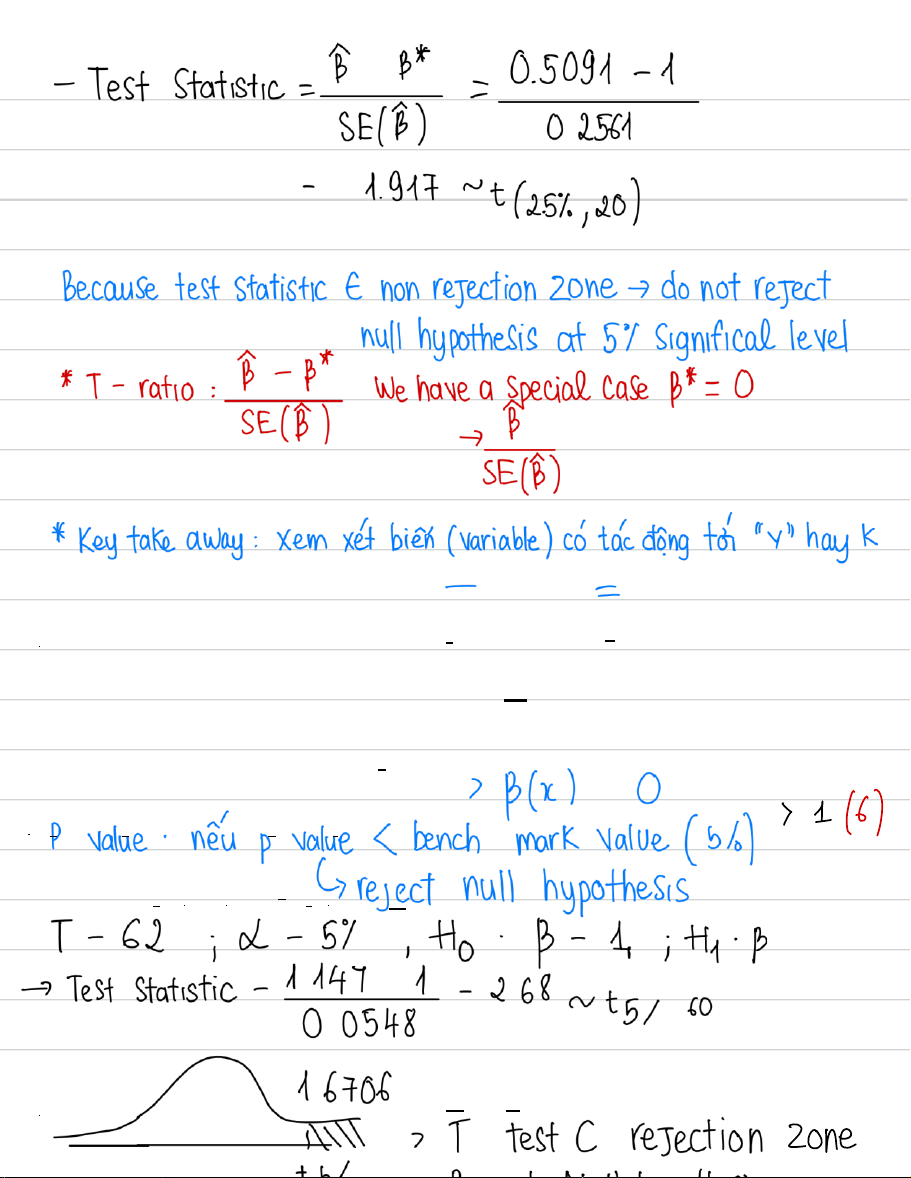 - Test Statistic = β̂ β* / SE(β̂) = 0.5091 - 1 / 0 2561
- 1.917 ~ t (25%, 20)
Because test statistic ∈ non rejection zone → do not reject
null hypothesis at 5% Significal level
* T - ratio : β̂ - β* / SE(β̂) We have a special case β* = 0
→ β̂ / SE(β̂)
* Key take away : xem xét biến (variable) có tác động tới "y" hay k
> β(x) 0
> 1 (6)
P value · nếu p value < bench mark value (5%)
↳ reject null hypothesis
T - 62 ; α - 5% , H0 · β - 1, ; H1 · β
→ Test Statistic - 1 147 1 / 0 0548 - 2 68 ~ t5/ 60
1 6706
> T test C rejection zone